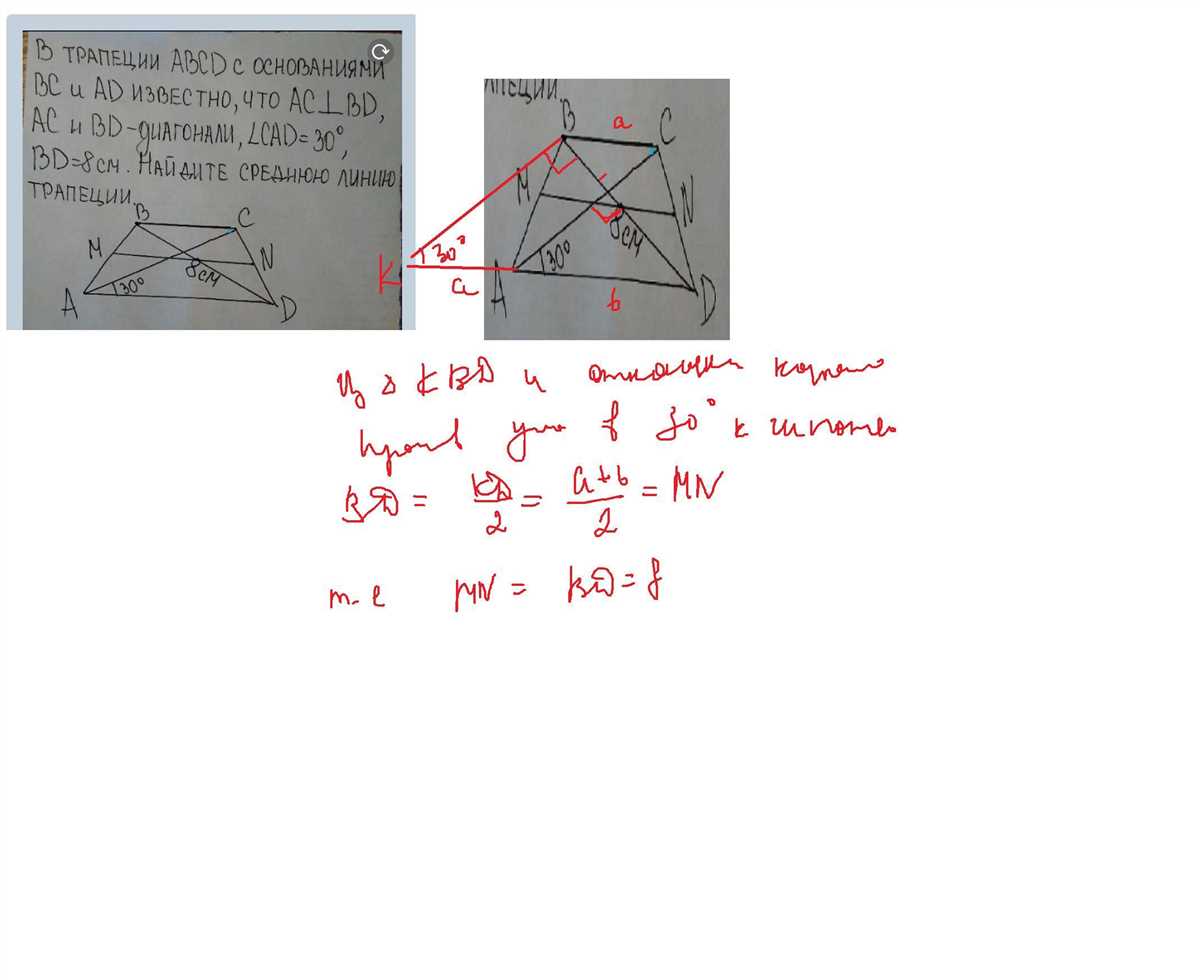 В ТРАПЕЦИИ ABCD С ОСНОВАНИЯМИ
BC и AD ИЗВЕСТНО, ЧТО AC⊥BD,
AC и BD-ДИАГОНАЛИ, ∠CAD=30°,
BD=8СМ. НАЙДИТЕ СРЕДНЮЮ ЛИНИЮ
ТРАПЕЦИИ.
B
C
M
N
8СМ
30°
A
D
АПЕЦИИ.
B
a
C
M
N
30°
8СМ
30°
K
a
A
b
D
Из Δ KBD и
против угла в 30° к
BD = KD/2 = a+b/2 = MN
т-е MN = BD = 8